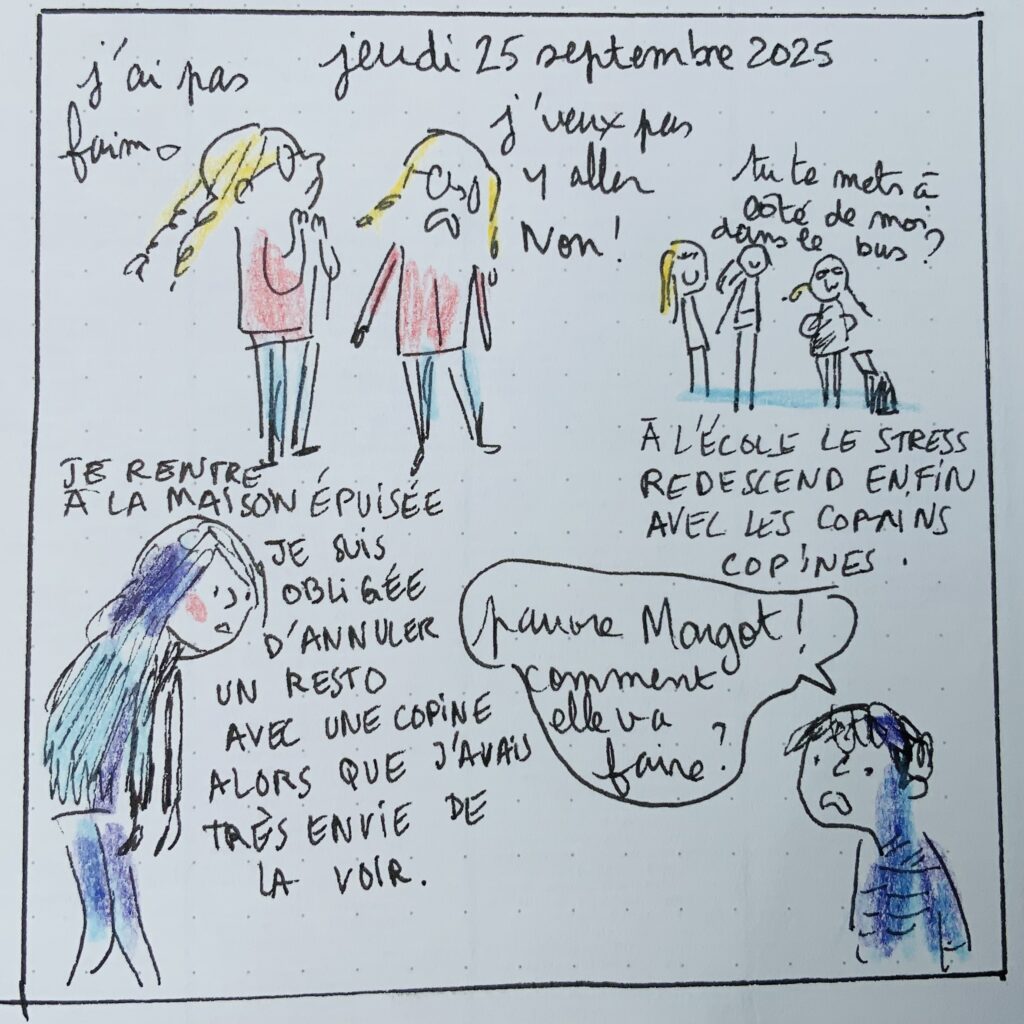 jeudi 25 septembre 2025
j'ai pas
faim.
j'veux pas
y aller
Non!
tu te mets à
côté de moi
dans le bus?
À L'ÉCOLE LE STRESS
REDESCEND ENFIN
AVEC LES COPAINS
COPINES.
JE RENTRE
À LA MAISON ÉPUISÉE
JE SUIS
OBLIGÉE
D'ANNULER
UN RESTO
AVEC UNE COPINE
ALORS QUE J'AVAIS
TRÈS ENVIE DE
LA VOIR.
pauvre Margot!
comment
elle va
faire?